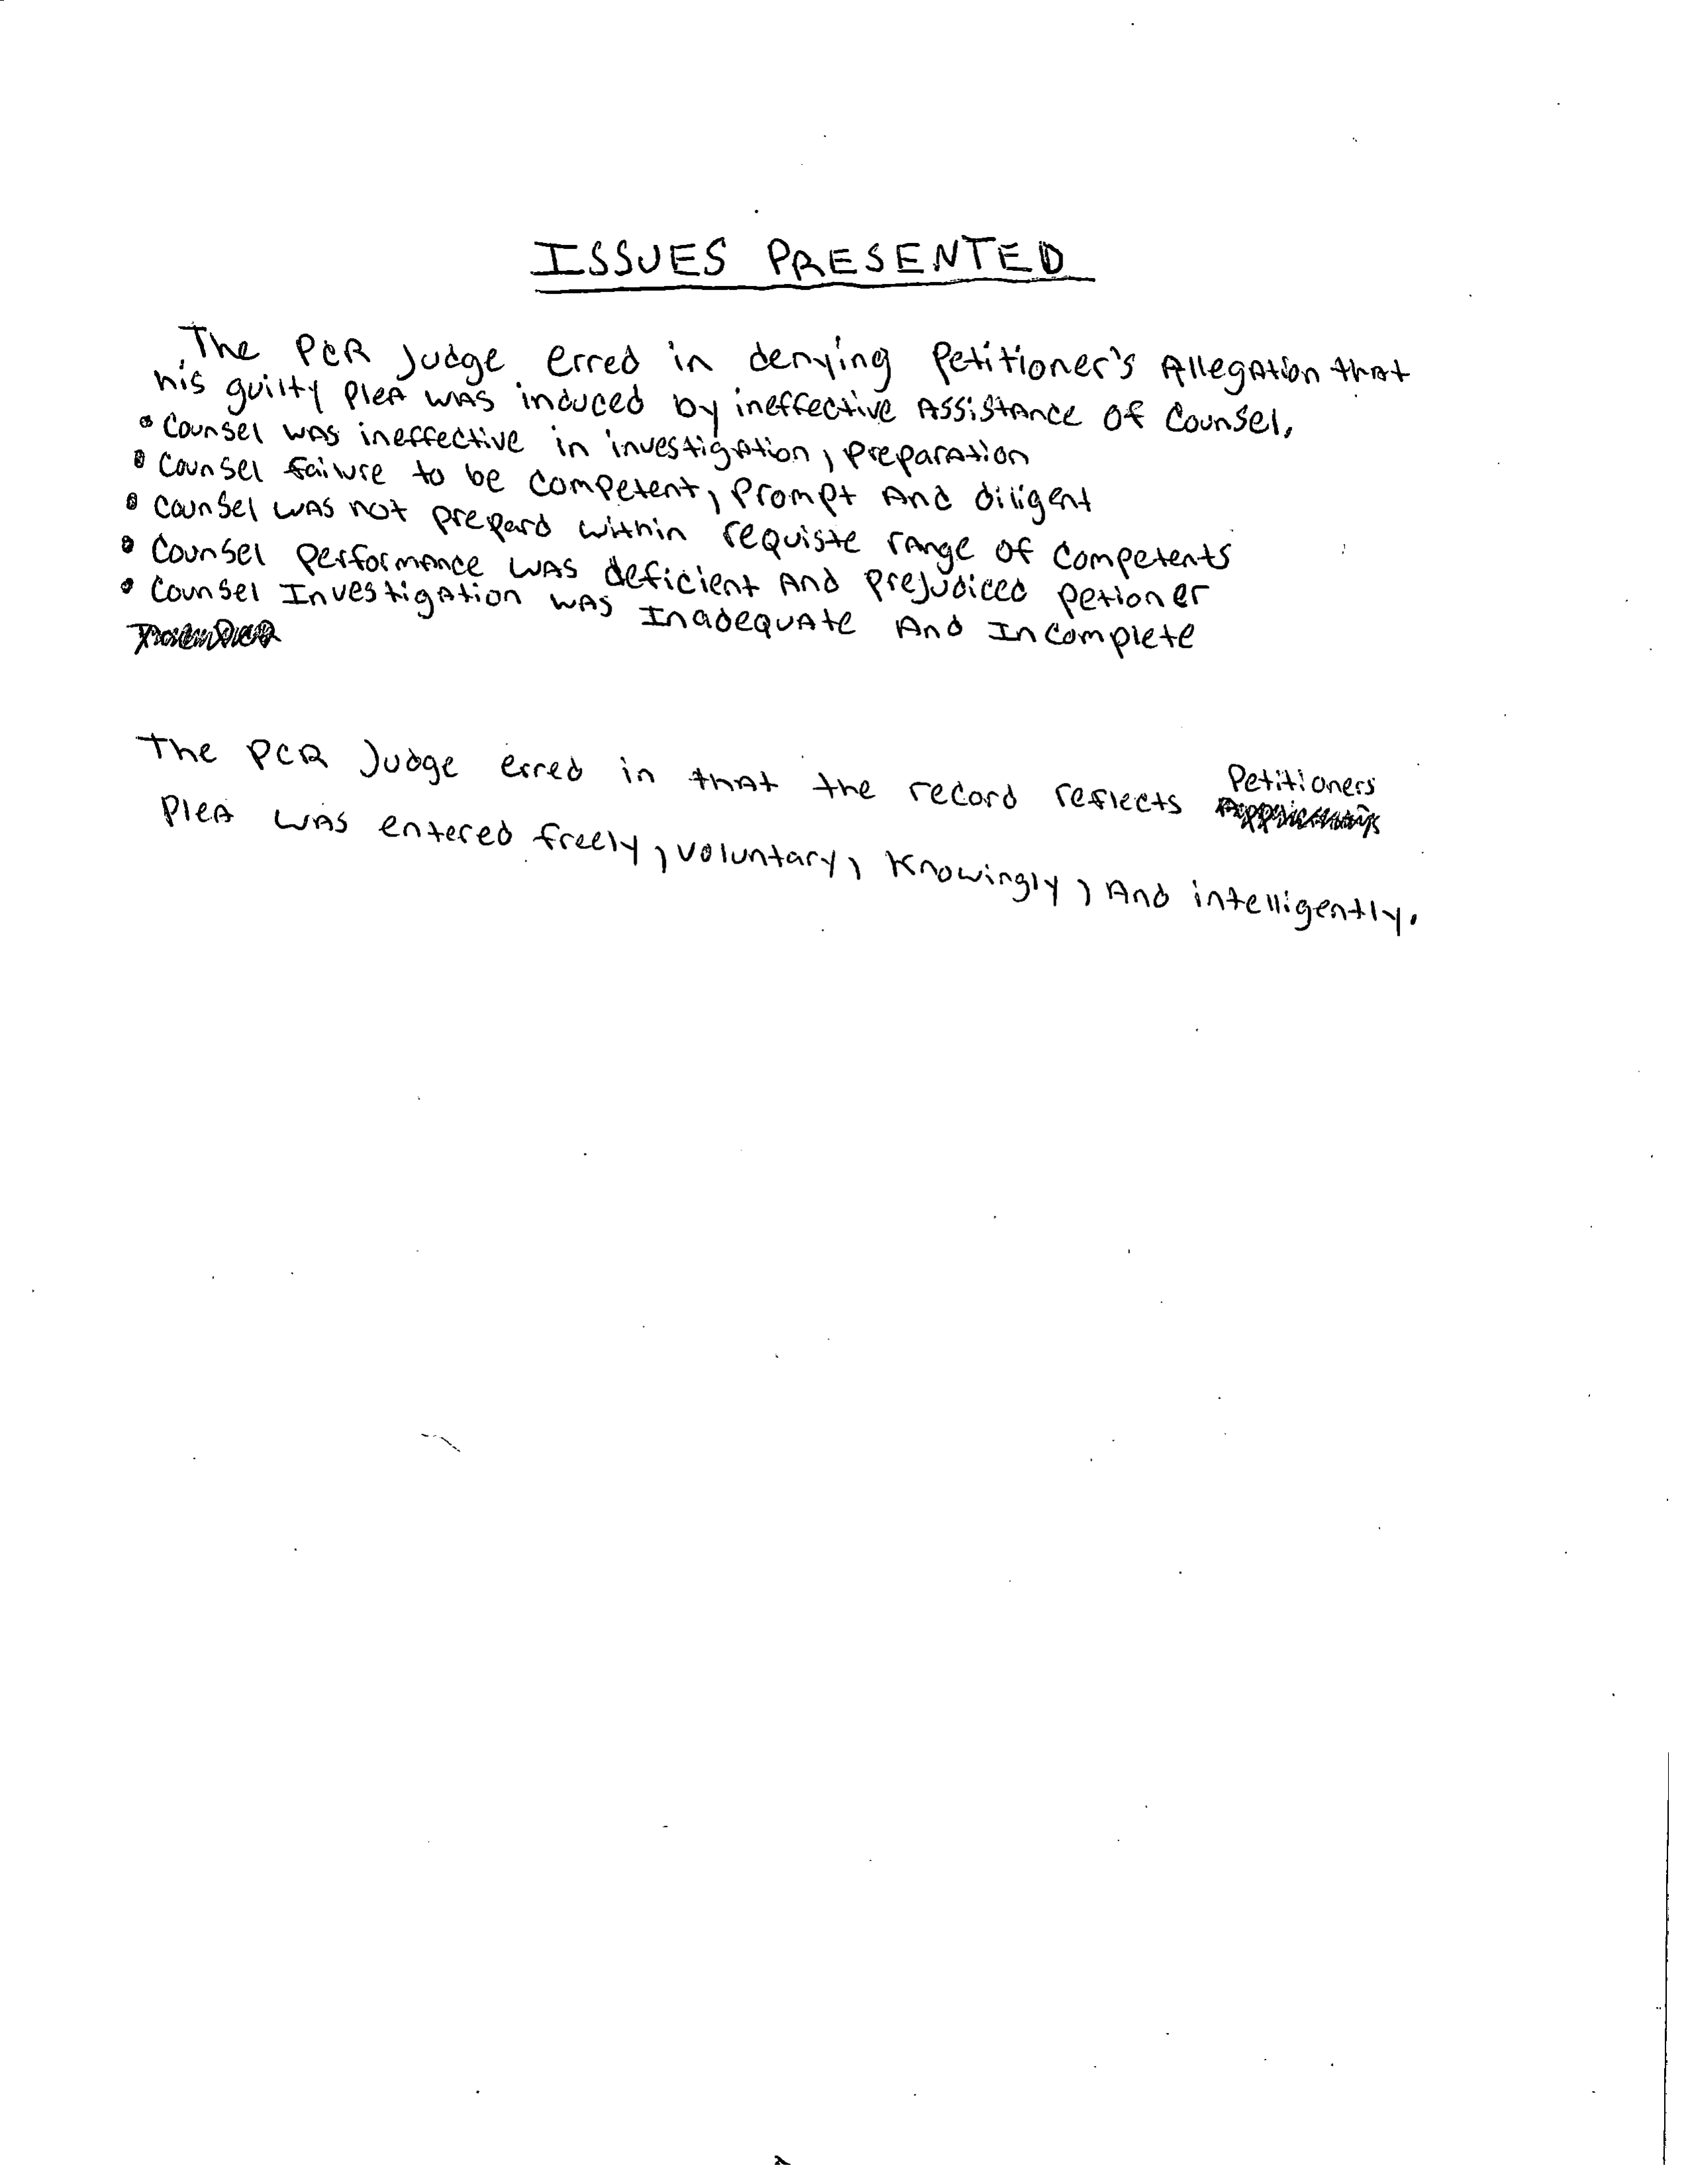 ISSUES PRESENTED
The PCR Judge erred in denying Petitioner's Allegation that
his guilty plea was induced by ineffective Assistance of Counsel,
• Counsel was ineffective in investigation, preparation
• Counsel failure to be competent, prompt and diligent
• Counsel was not prepard within requiste range of competents
• Counsel performance was deficient and prejudiced petioner
• Counsel Investigation was Inadequate And Incomplete
The PCR Judge erred in that the record reflects Petitioners
Plea was entered freely, voluntary, Knowingly, And intelligently.